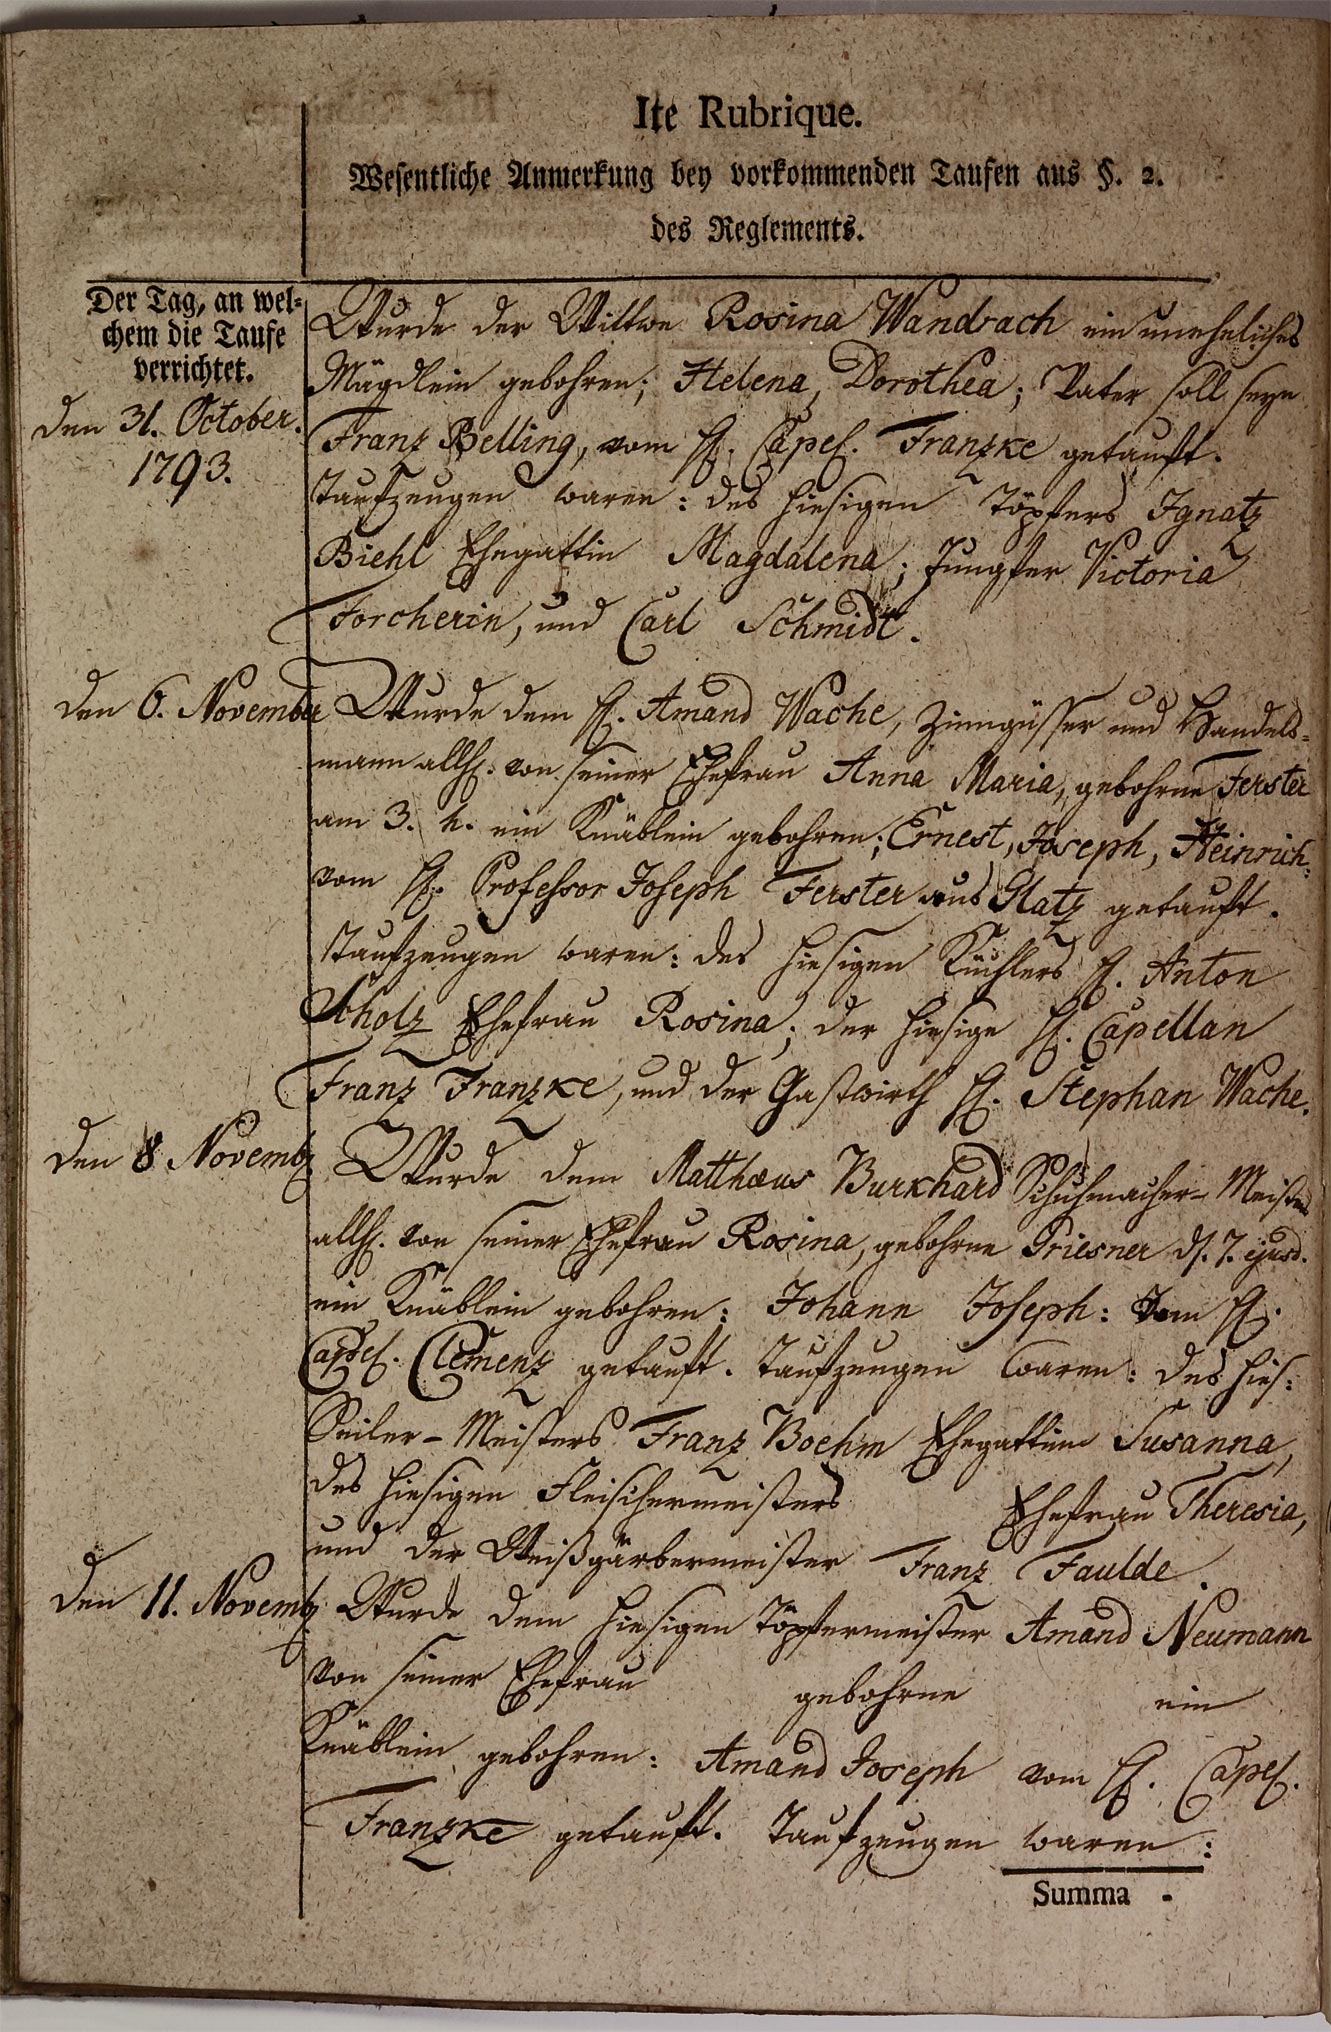 Ite Rubrique.
Wesentliche Anmerkung bey vorkommenden Taufen aus §. 2.
des Reglements.
Der Tag, an wel-
chem die Taufe
verrichtet.
den 31. October.
1793.
Wurde der Wittwe Rosina Wandrach ein uneheliches
Mägdlein gebohren; Helena, Dorothea; Vater soll seyn
Franz Belling, vom H. Capel. Franzke getauft.
Taufzeugen waren: des hiesigen Töpfers Ignatz
Biehl Ehegattin Magdalena; Jungfer Victoria
Forcherin, und Carl Schmidt.
den 6. November
Wurde dem H. Amand Wache, Zinngüsser und Handels-
mann allh. von seiner Ehefrau Anna Maria, gebohrne Ferster
am 3. h. ein Knäblein gebohren; Ernest, Joseph, Heinrich;
vom H. Professor Joseph Ferster aus Glatz getauft.
Taufzeugen waren: des hiesigen Küchlers H. Anton
Scholz Ehefrau Rosina; der hiesige H. Capellan
Franz Franzke, und der Gastwirth H. Stephan Wache.
den 8 Novemb
Wurde dem Matthæus Burkhard Schuhmacher-Meister
allh. von seiner Ehefrau Rosina, gebohrne Priesner d. 7. ejusd.
ein Knäblein gebohren: Johann Joseph: Vom H.
Capel. Clemenz getauft. Taufzeugen waren: des hies:
Seiler-Meisters Franz Boehm Ehegattinn Susanna,
des hiesigen Fleischermeisters Ehefrau Theresia,
und der Weißgärbermeister Franz Faulde.
den 11. Novemb
Wurde dem hiesigen Töpfermeister Amand Neumann
von seiner Ehefrau gebohrne ein
Knäblein gebohren: Amand Joseph vom H. Capel.
Franzke getauft. Taufzeugen waren:
Summa -